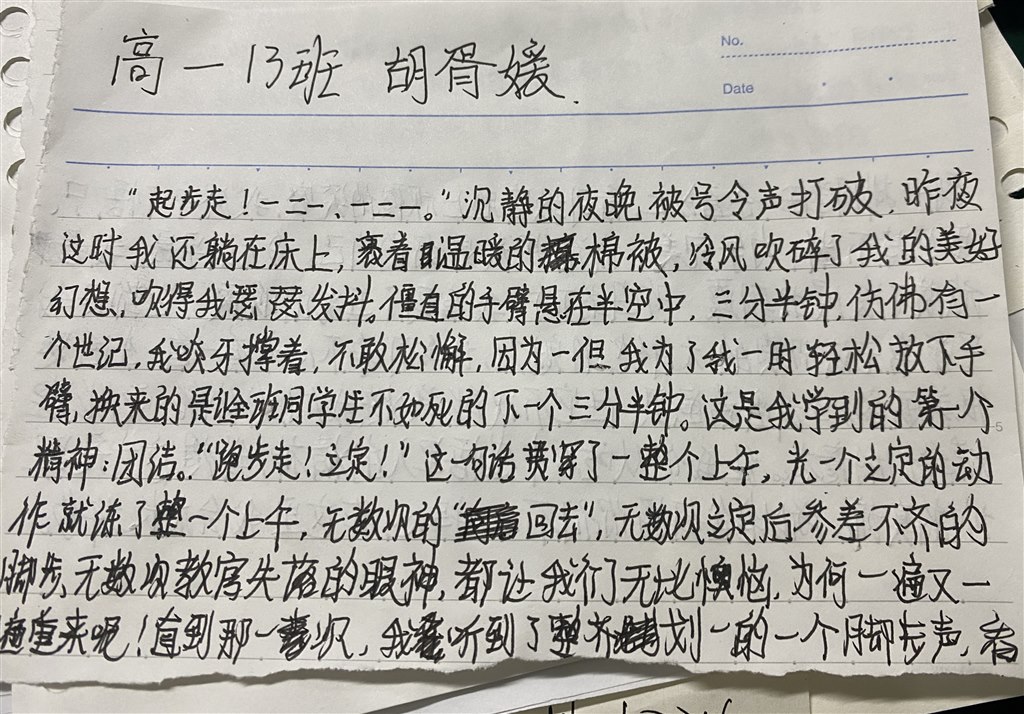 高一13班 胡胥媛.
No.
Date
“起步走！一二一、一二一。”沉静的夜晚被号令声打破，昨夜
这时我还躺在床上，裹着温暖的棉被，冷风吹碎了我的美好
幻想，吹得我瑟瑟发抖。僵直的手臂悬在半空中，三分半钟，仿佛有一
个世记，我咬牙撑着，不敢松懈，因为一但我为了我一时轻松放下手
臂，换来的是让全班同学生不如死的下一个三分半钟。这是我学到的第一个
5
精神：团洁。“跑步走！立定！”这一句话贯穿了一整个上午，光一个立定的动
作就练了整一个上午，无数次的“回去”，无数次立定后参差不齐的
脚步，无数次教官失落的眼神，都让我们无比懊恼，为何一遍又一
遍重来呢！直到那一次，我听到了整齐划一的一个脚步声，看